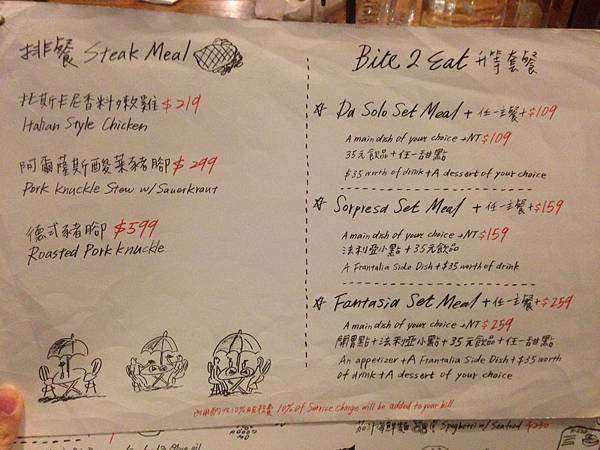 排餐 Steak Meal
托斯卡尼香料嫩雞 $219
Italian Style Chicken
阿爾薩斯酸菜豬腳 $299
Pork Knuckle Stew w/ Sauerkraut
德式豬腳 $599
Roasted Pork Knuckle
Bite 2 Eat 升等套餐
Da Solo Set Meal + 任一主餐 + $109
A main dish of your choice + NT $109
35元飲品 + 任一甜點
$35 worth of drink + A dessert of your choice
Sorpresa Set Meal + 任一主餐 + $159
A main dish of your choice + NT $159
法利亞小點 + 35元飲品
A Frantalia Side Dish + $35 worth of drink
Fantasia Set Meal + 任一主餐 + $259
A main dish of your choice + NT $259
開胃點 + 法利亞小點 + 35元飲品 + 任一甜點
An appetizer + A Frantalia Side Dish + $35 worth
of drink + A dessert of your choice
內用酌收10%服務費 10% of Service charge will be added to your bill
Spaghetti w/ Seafood $230
Olive oil